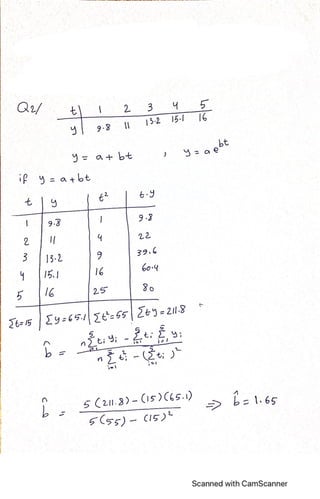 Q2/ t | 1 2 3 4 5
y | 9.8 11 13.2 15.1 16
y = a + bt , y = a e^bt
if y = a + bt
t | y | t² | t.y
1 | 9.8 | 1 | 9.8
2 | 11 | 4 | 22
3 | 13.2 | 9 | 39.6
4 | 15.1 | 16 | 60.4
5 | 16 | 25 | 80
Σt=15 | Σy=65.1 | Σt²=55 | Σty=211.8
b̂ = (n Σ_{i=1}^{5} tᵢ yᵢ - Σ_{i=1}^{5} tᵢ Σ_{i=1}^{5} yᵢ) / (n Σ_{i=1}^{5} tᵢ² - (Σ_{i=1}^{5} tᵢ)²)
b̂ = (5 (211.8) - (15)(65.1)) / (5(55) - (15)²) ⇒ b̂ = 1.65
Scanned with CamScanner